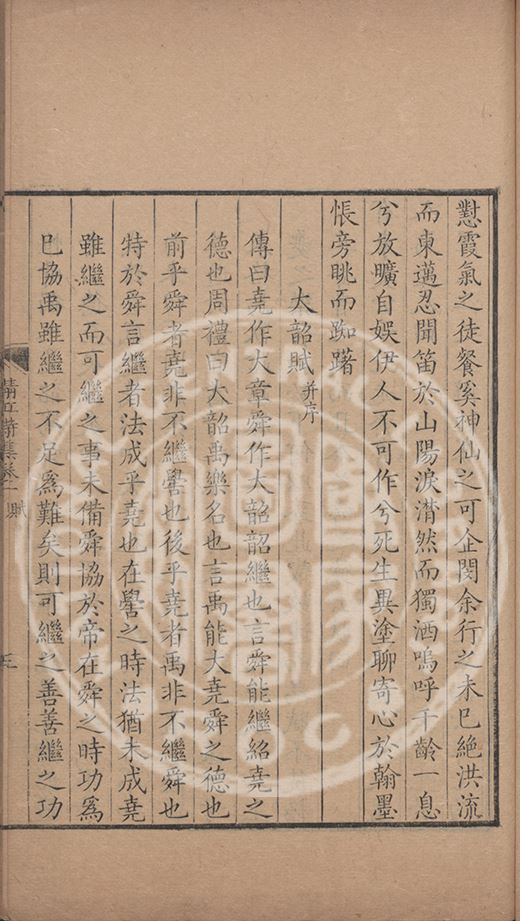 懟霞氣之徒餐奚神仙之可企閔余行之未已絶洪流
而東邁忍聞笛於山陽淚潸然而獨洒嗚呼千齡一息
兮放曠自娛伊人不可作兮死生異塗聊寄心於翰墨
悵旁眺而踟躇
大韶賦 并序
傳曰堯作大章舜作大韶韶繼也言舜能繼紹堯之
德也周禮曰大韶禹樂名也言禹能大堯舜之德也
前乎舜者堯非不繼嚳也後乎堯者禹非不繼舜也
特於舜言繼者法成乎堯也在嚳之時法猶未成堯
雖繼之而可繼之事未備舜協於帝在舜之時功爲
已協禹雖繼之不足爲難矣則可繼之善善繼之功
集卷一 賦